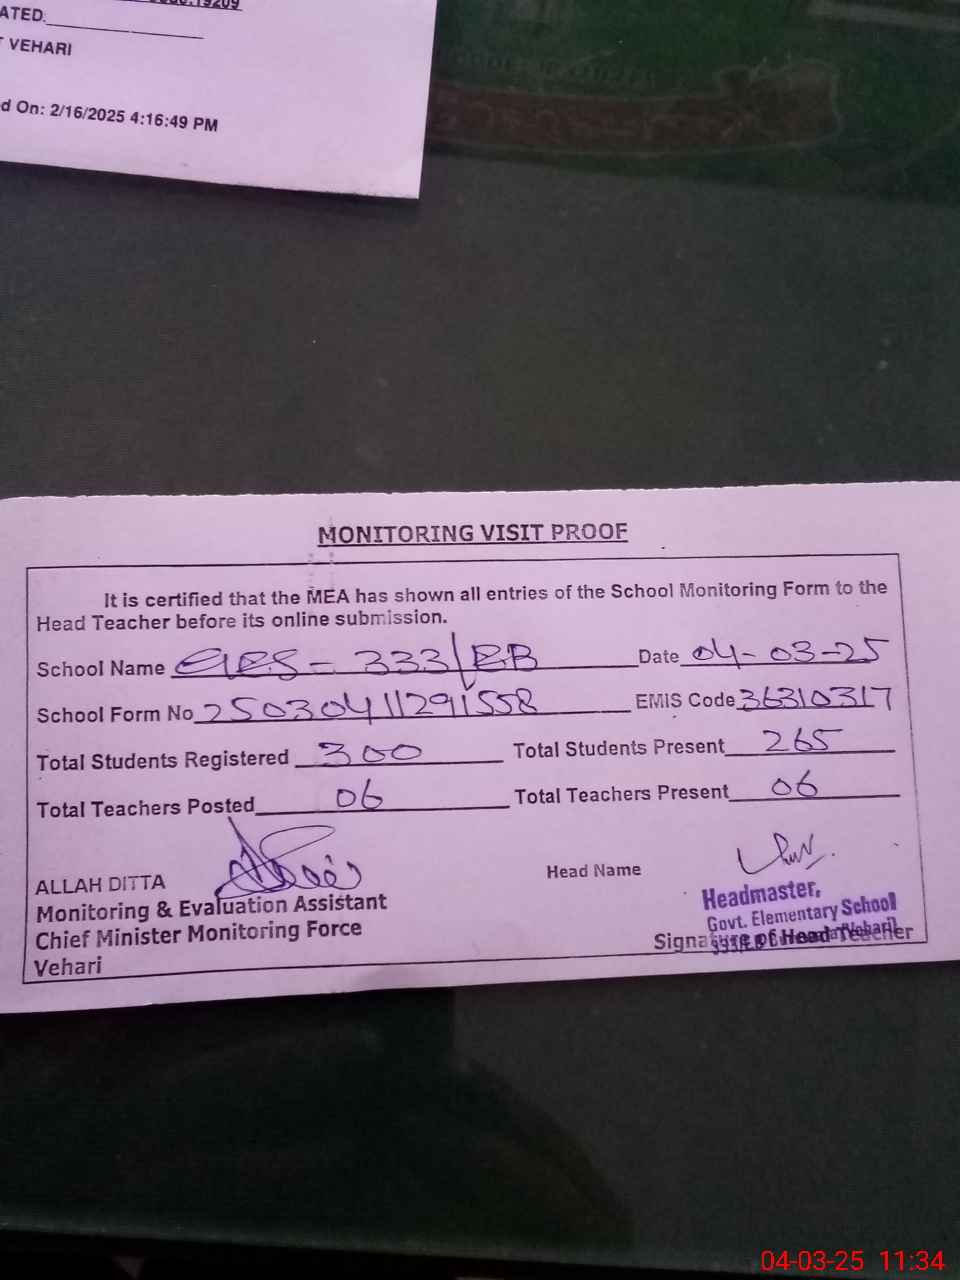 ATED:
T VEHARI
d On: 2/16/2025 4:16:49 PM
MONITORING VISIT PROOF
It is certified that the MEA has shown all entries of the School Monitoring Form to the
Head Teacher before its online submission.
School Name GES - 333/EB Date 04-03-25
School Form No 25030411291558 EMIS Code 36310317
Total Students Registered 300 Total Students Present 265
Total Teachers Posted 06 Total Teachers Present 06
ALLAH DITTA Head Name
Monitoring & Evaluation Assistant
Chief Minister Monitoring Force
Vehari
Headmaster,
Govt. Elementary School
333/EB
Signature of Head Teacher
04-03-25 11:34